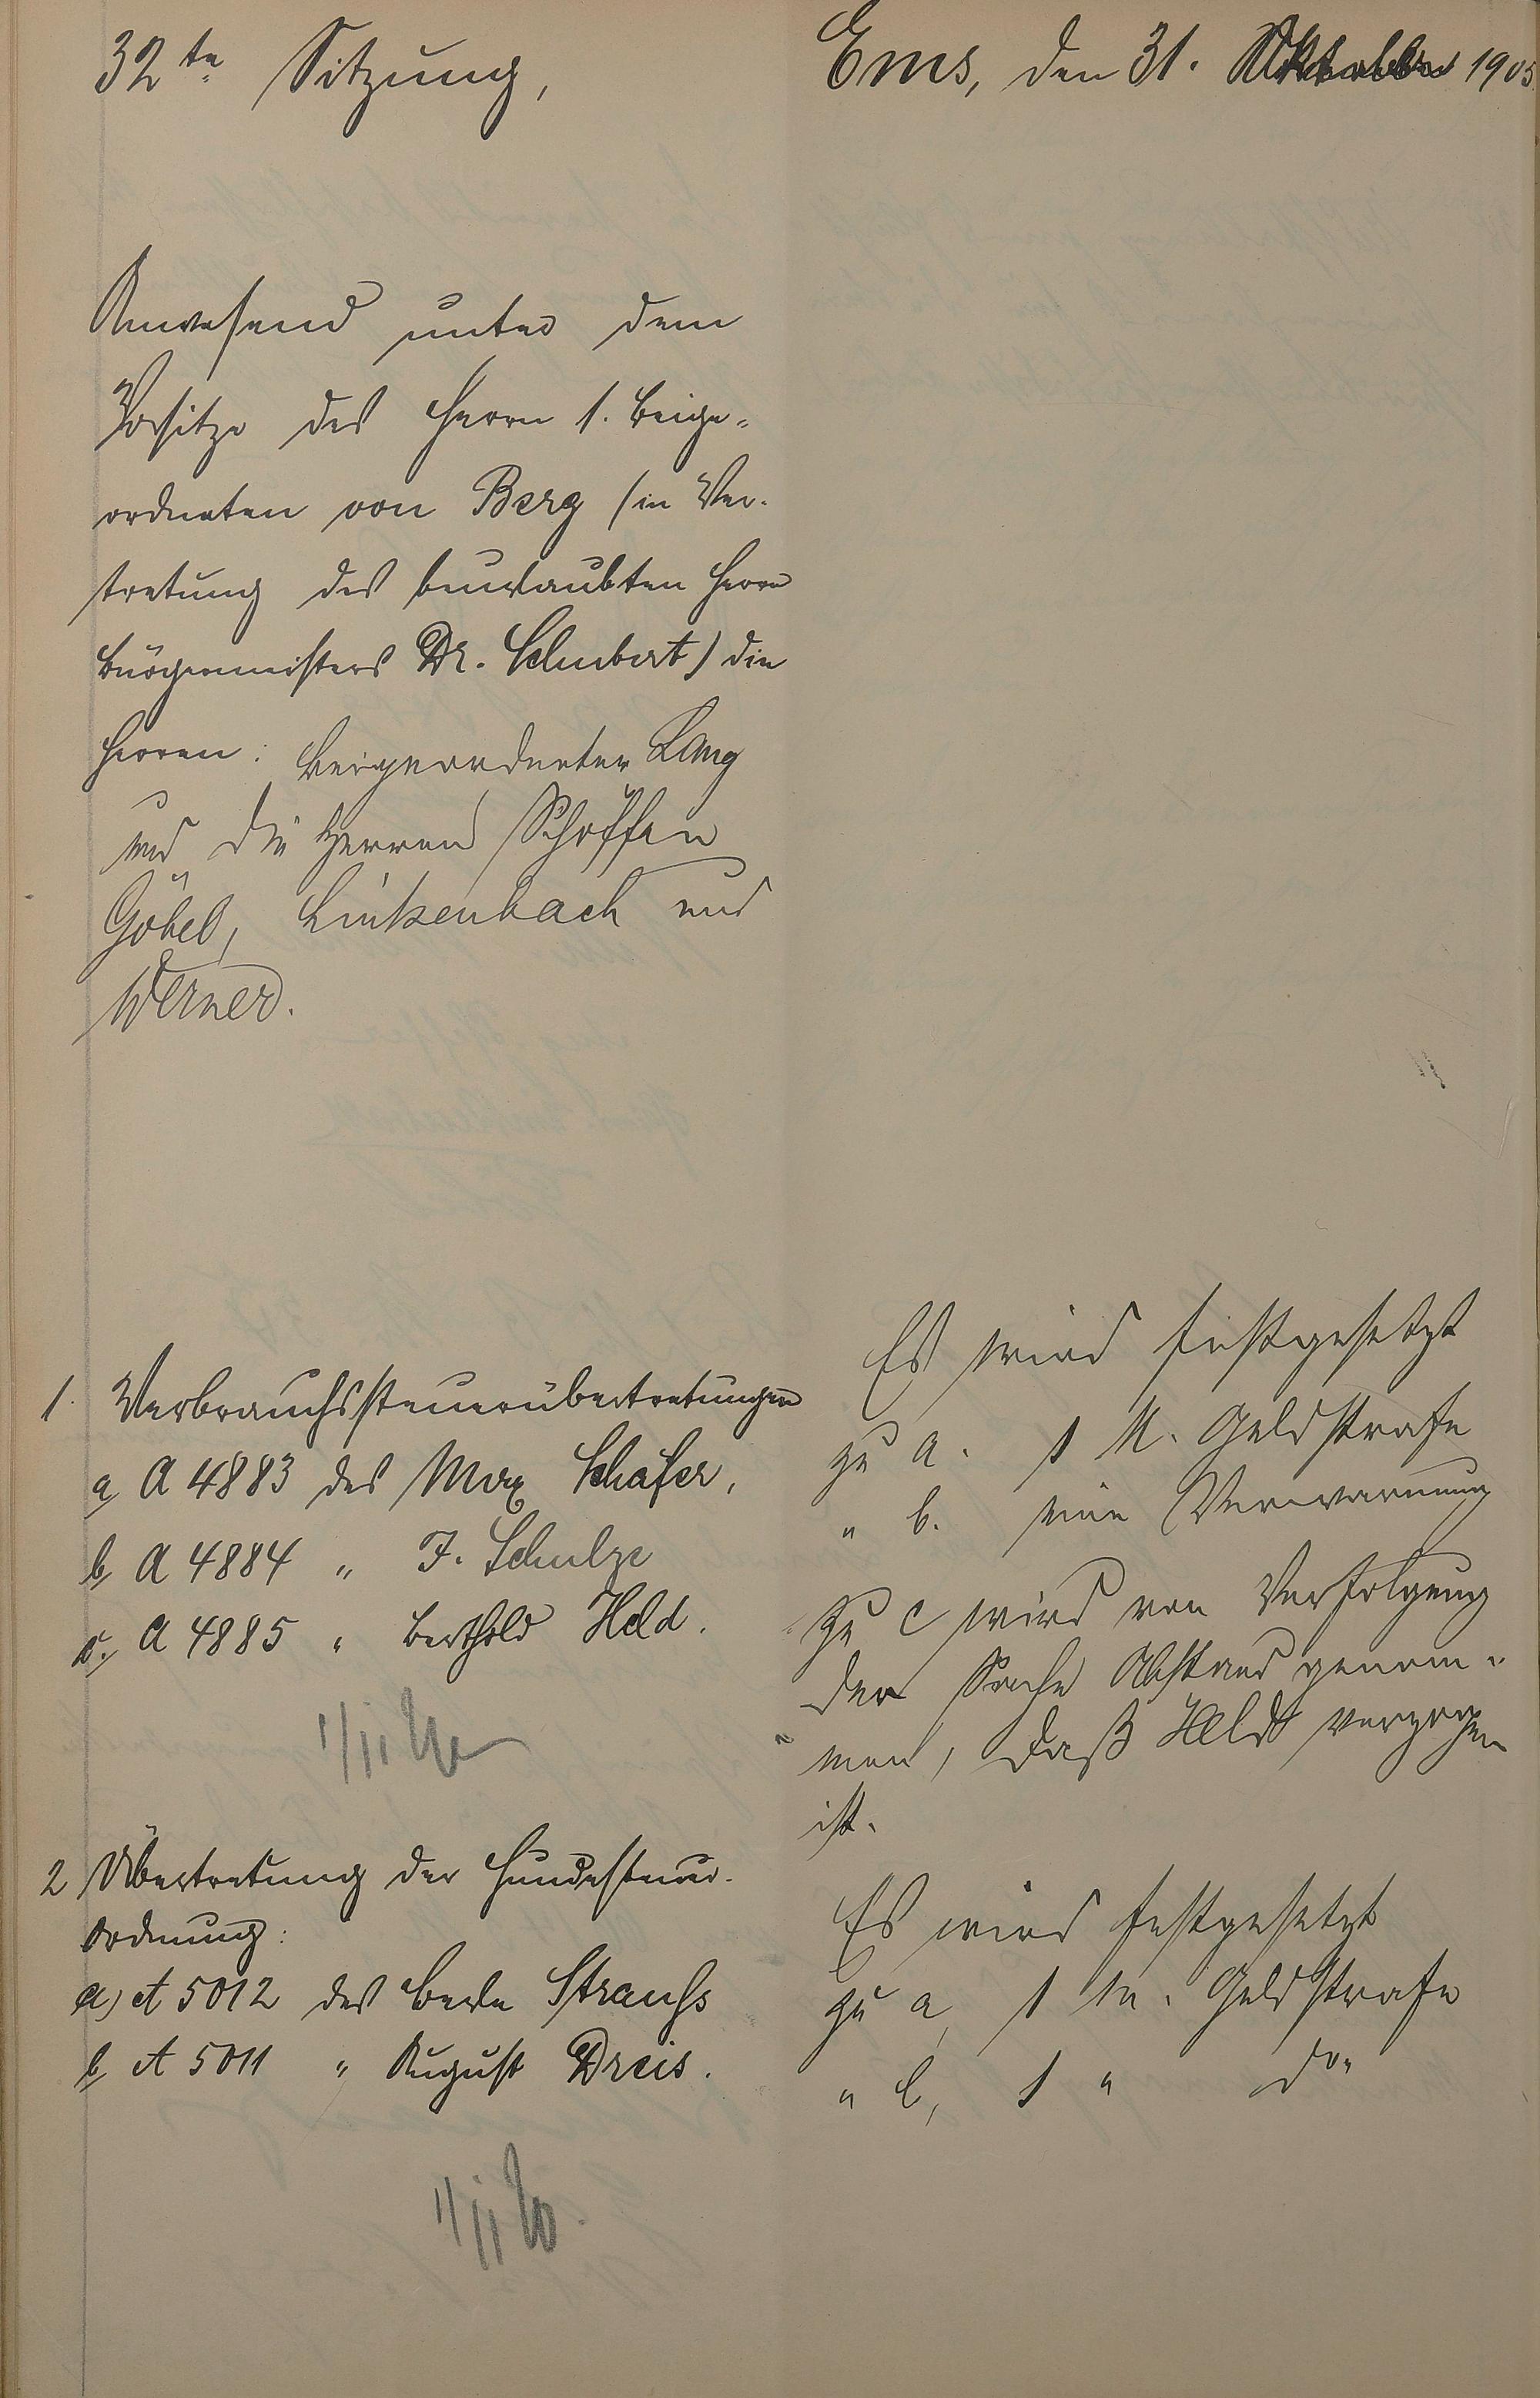 32te Sitzung,
Ems, den 31. Oktober 1905
Anwesend unter dem
Vorsitze des Herrn 1. Beige-
ordneten von Berg (in Ver-
tretung des beurlaubten Herrn
Bürgermeisters Dr. Schubert) die
Herren: Beigeordneter Lang
und die Herren Schöffen
Göbel, Linkenbach und
Werner.
1. Verbrauchssteuerübertretungen
a, A 4883 des Max Schäfer,
b, A 4884 " F. Schulze
c., A 4885 " Berthold Held.
1/11
Es wird festgesetzt
zu a. 1 M. Geldstrafe
" b. eine Verwarnung
zu c wird von Verfolgung
der Sache Abstand genom-
men, daß Held verzogen
ist.
2 Übertretung der Hundesteuer-
Ordnung:
a) A 5012 des Strauß
b, A 5011 " August Dreis.
1/11
Es wird festgesetzt
zu a, 1 M. Geldstrafe
" b, 1 " do"